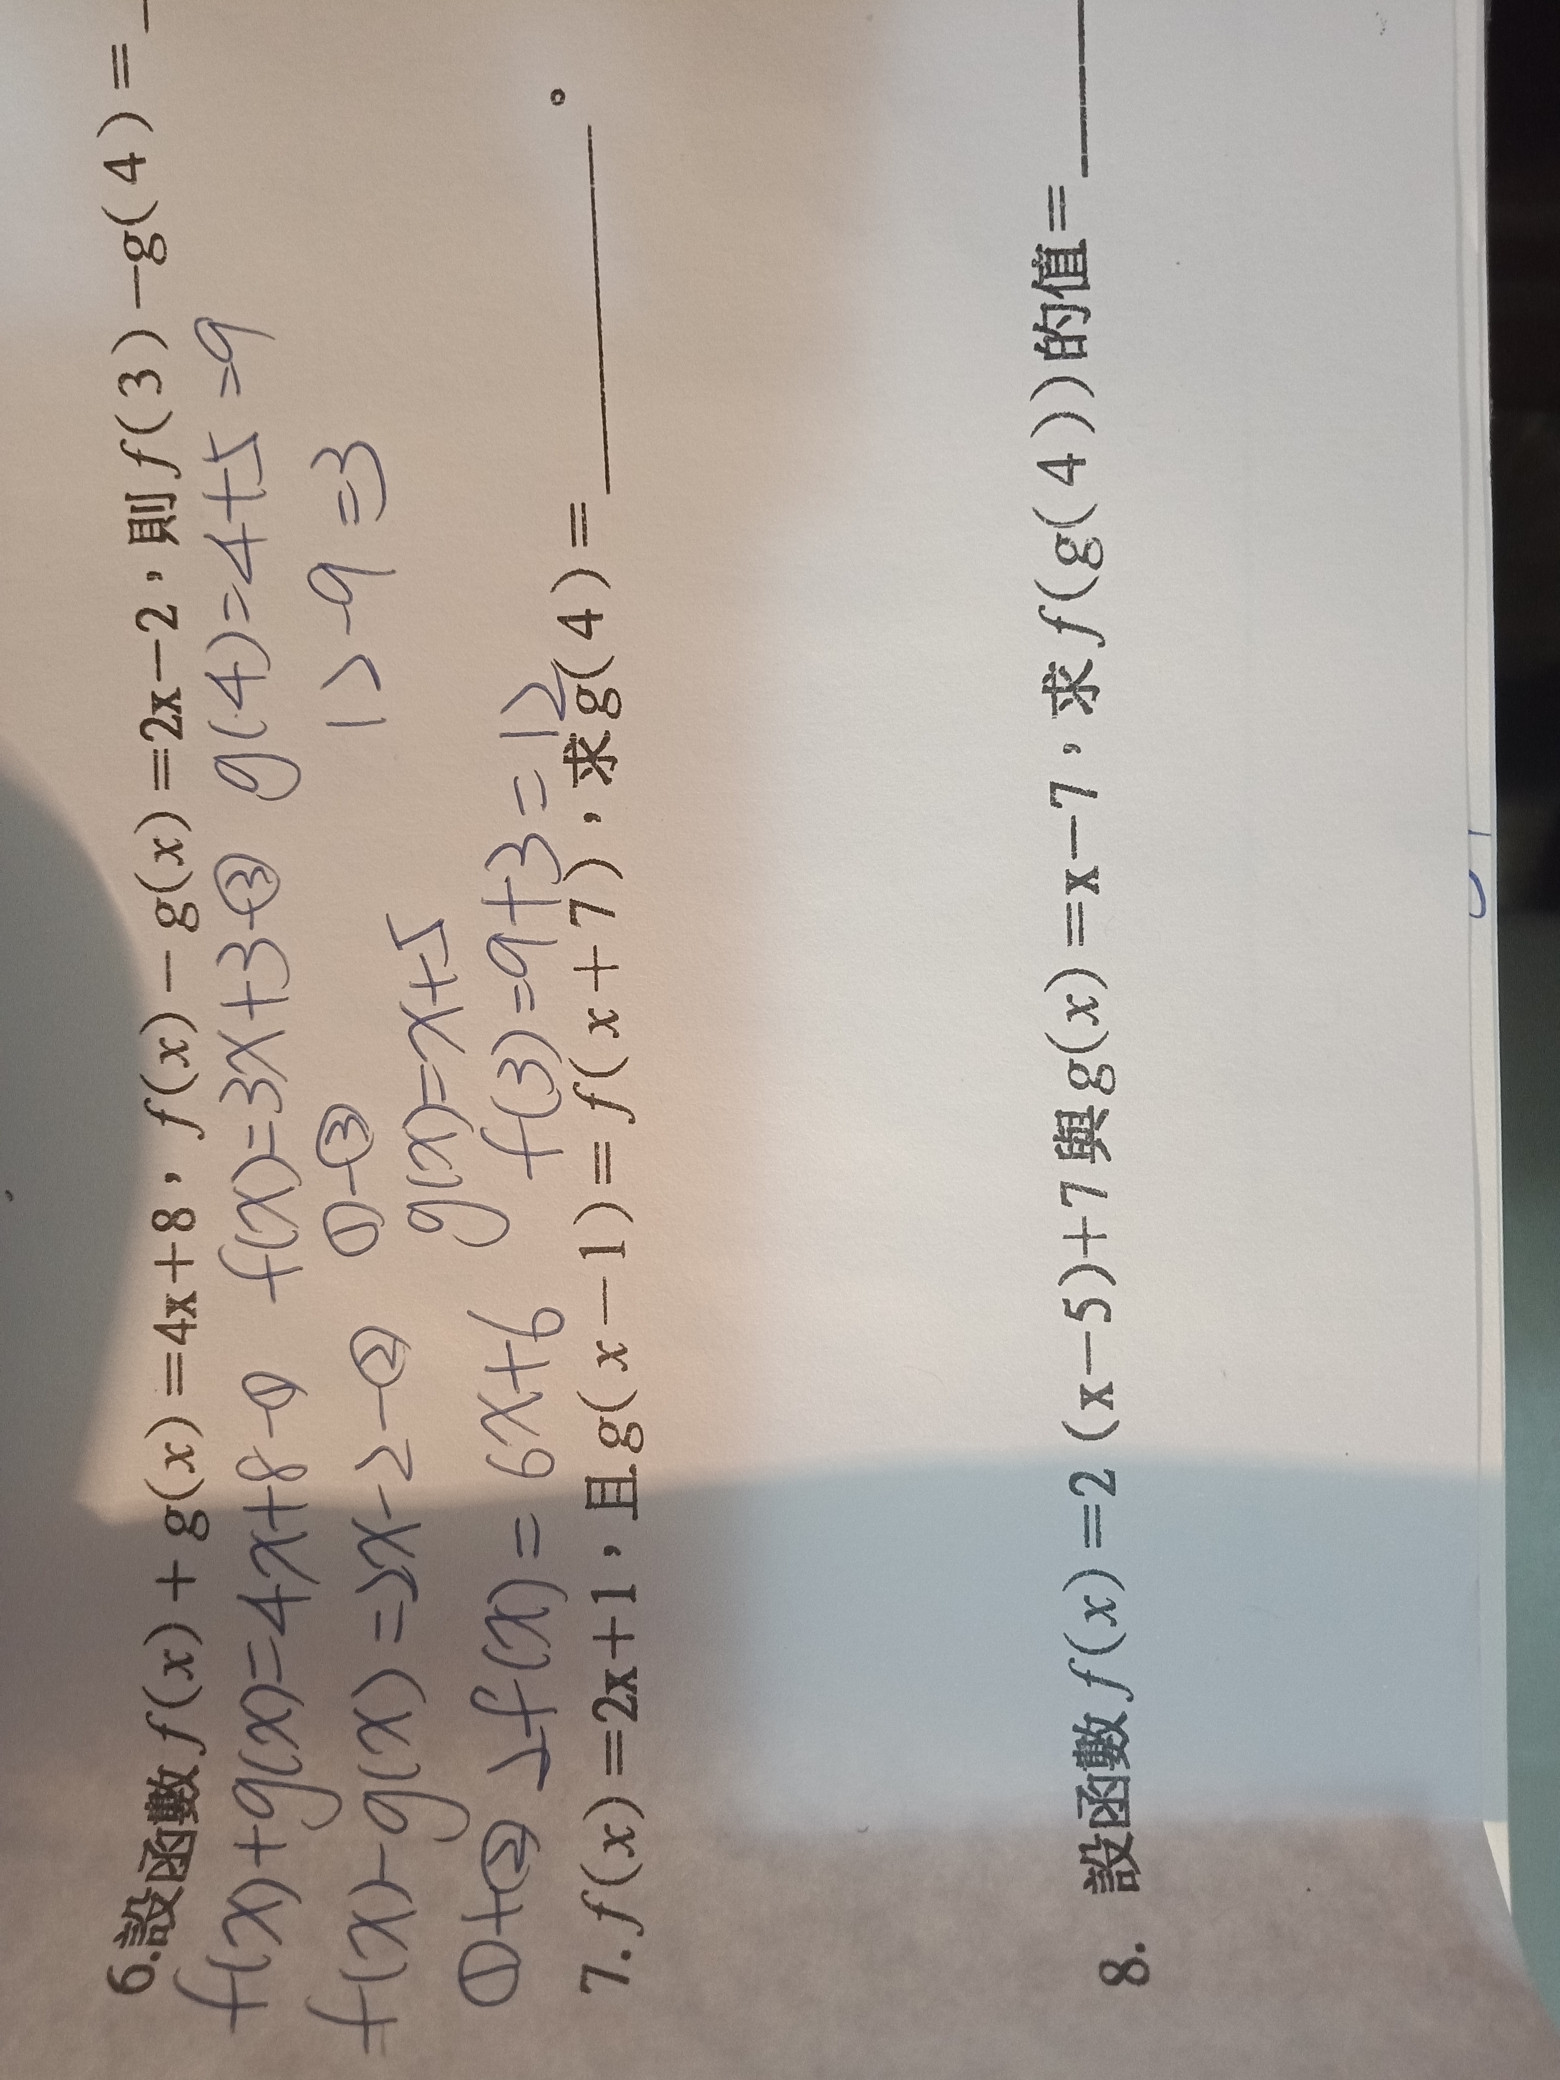 6.設函數f(x)+g(x)=4x+8,f(x)-g(x)=2x-2,則f(3)-g(4)=
f(x)+g(x)=4x+8-① f(x)=3x+3-③ g(4)=4+5=9
f(x)-g(x)=2x-2-② ①-③ 12-9=3
g(x)=x+5
①+② 2f(x)=6x+6 f(3)=9+3=12
7.f(x)=2x+1,且g(x-1)=f(x+7),求g(4)=______。
8. 設函數f(x)=2(x-5)+7與g(x)=x-7,求f(g(4))的值=____